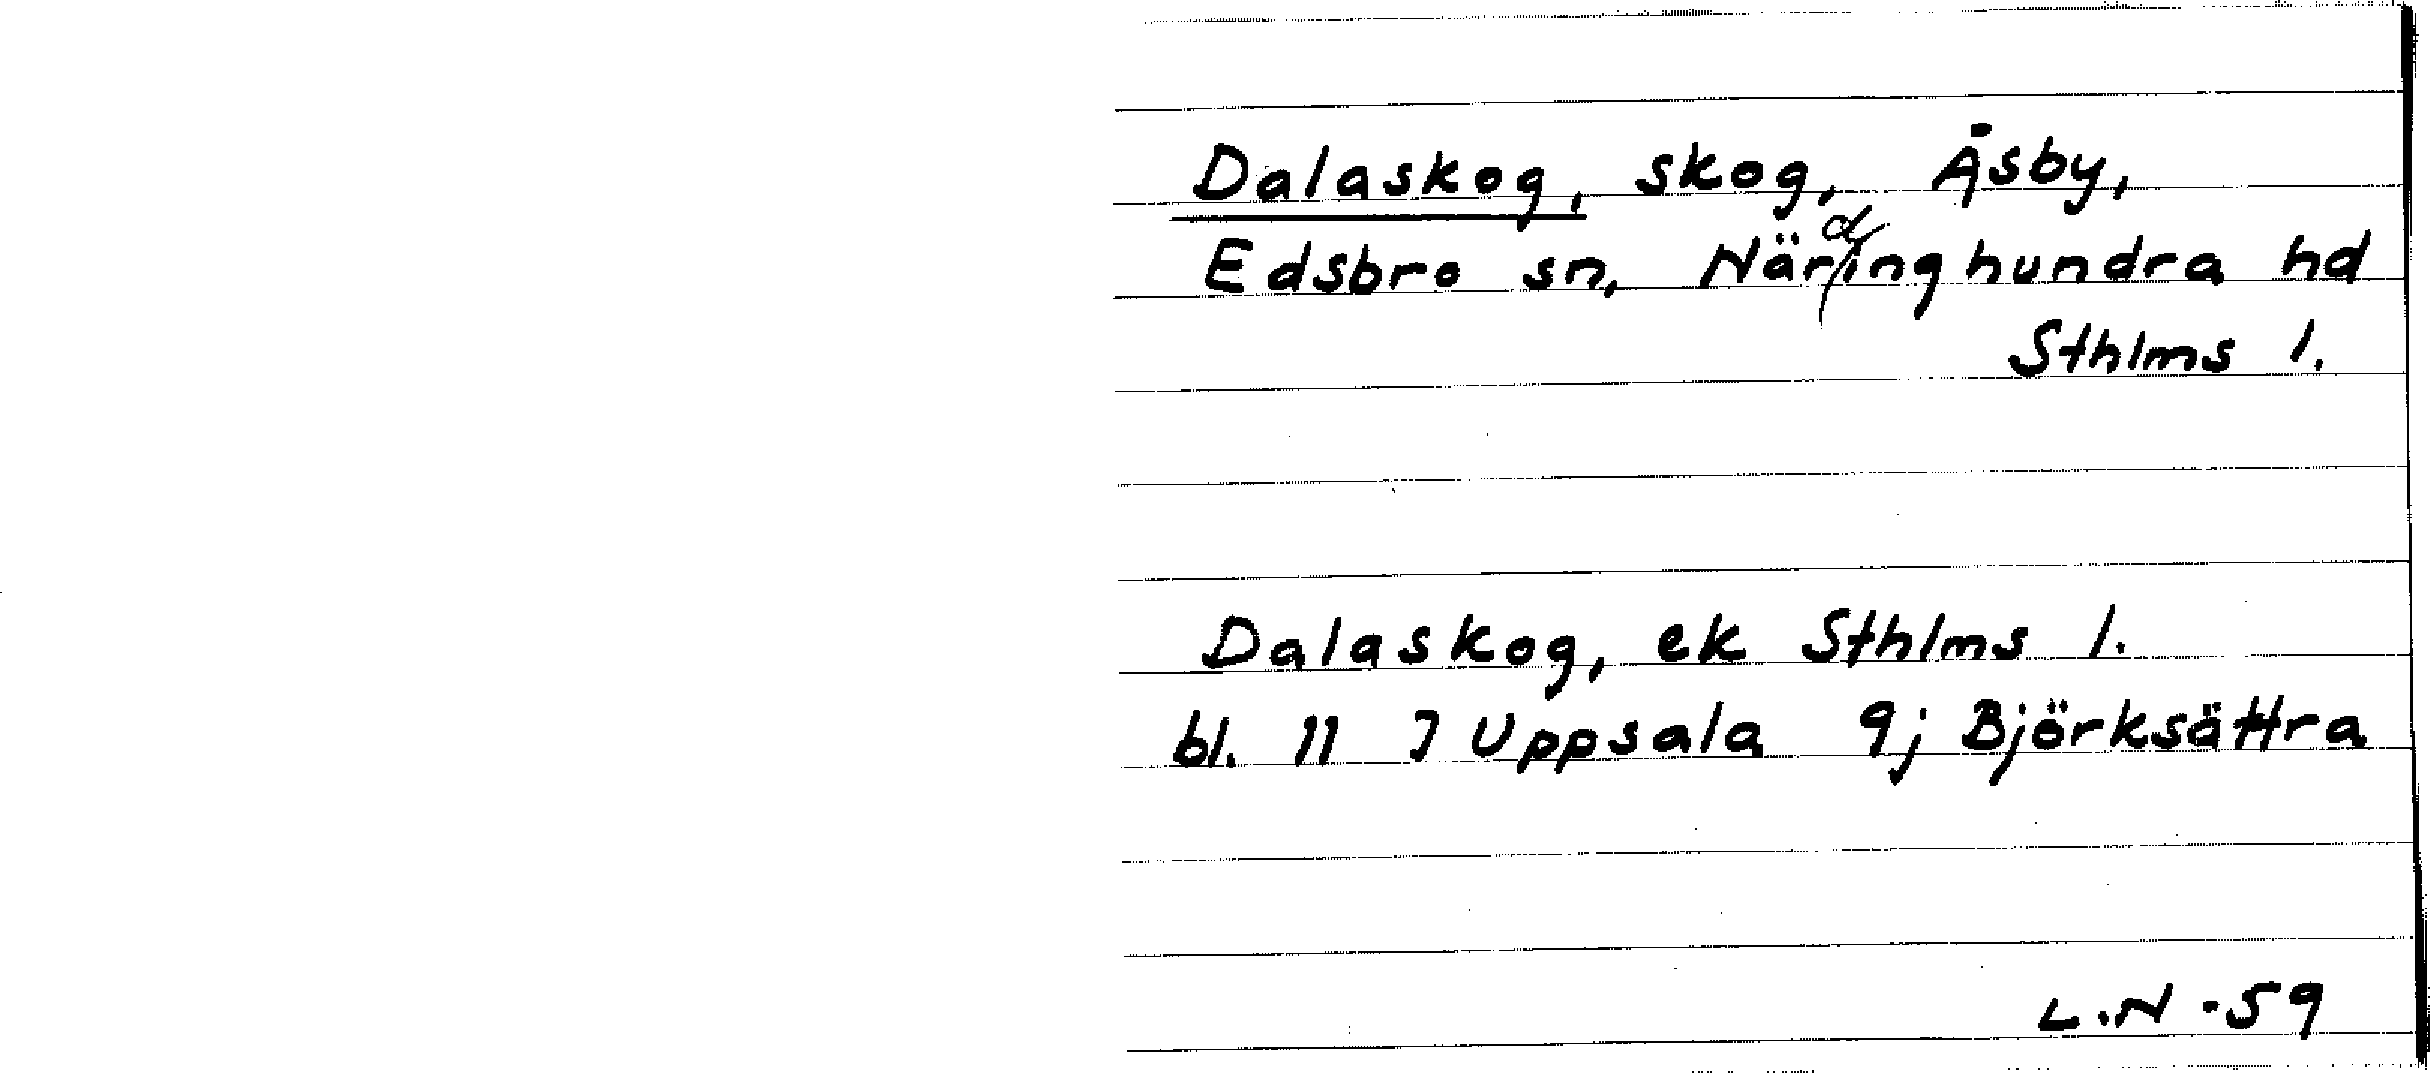 Dalaskog, skog, Åsby,
Edsbro sn, Närdinghundra hd
Sthlms l.
Dalaskog, ek Sthlms l.
bl. 11 J Uppsala 9j Björksättra
L.N -59